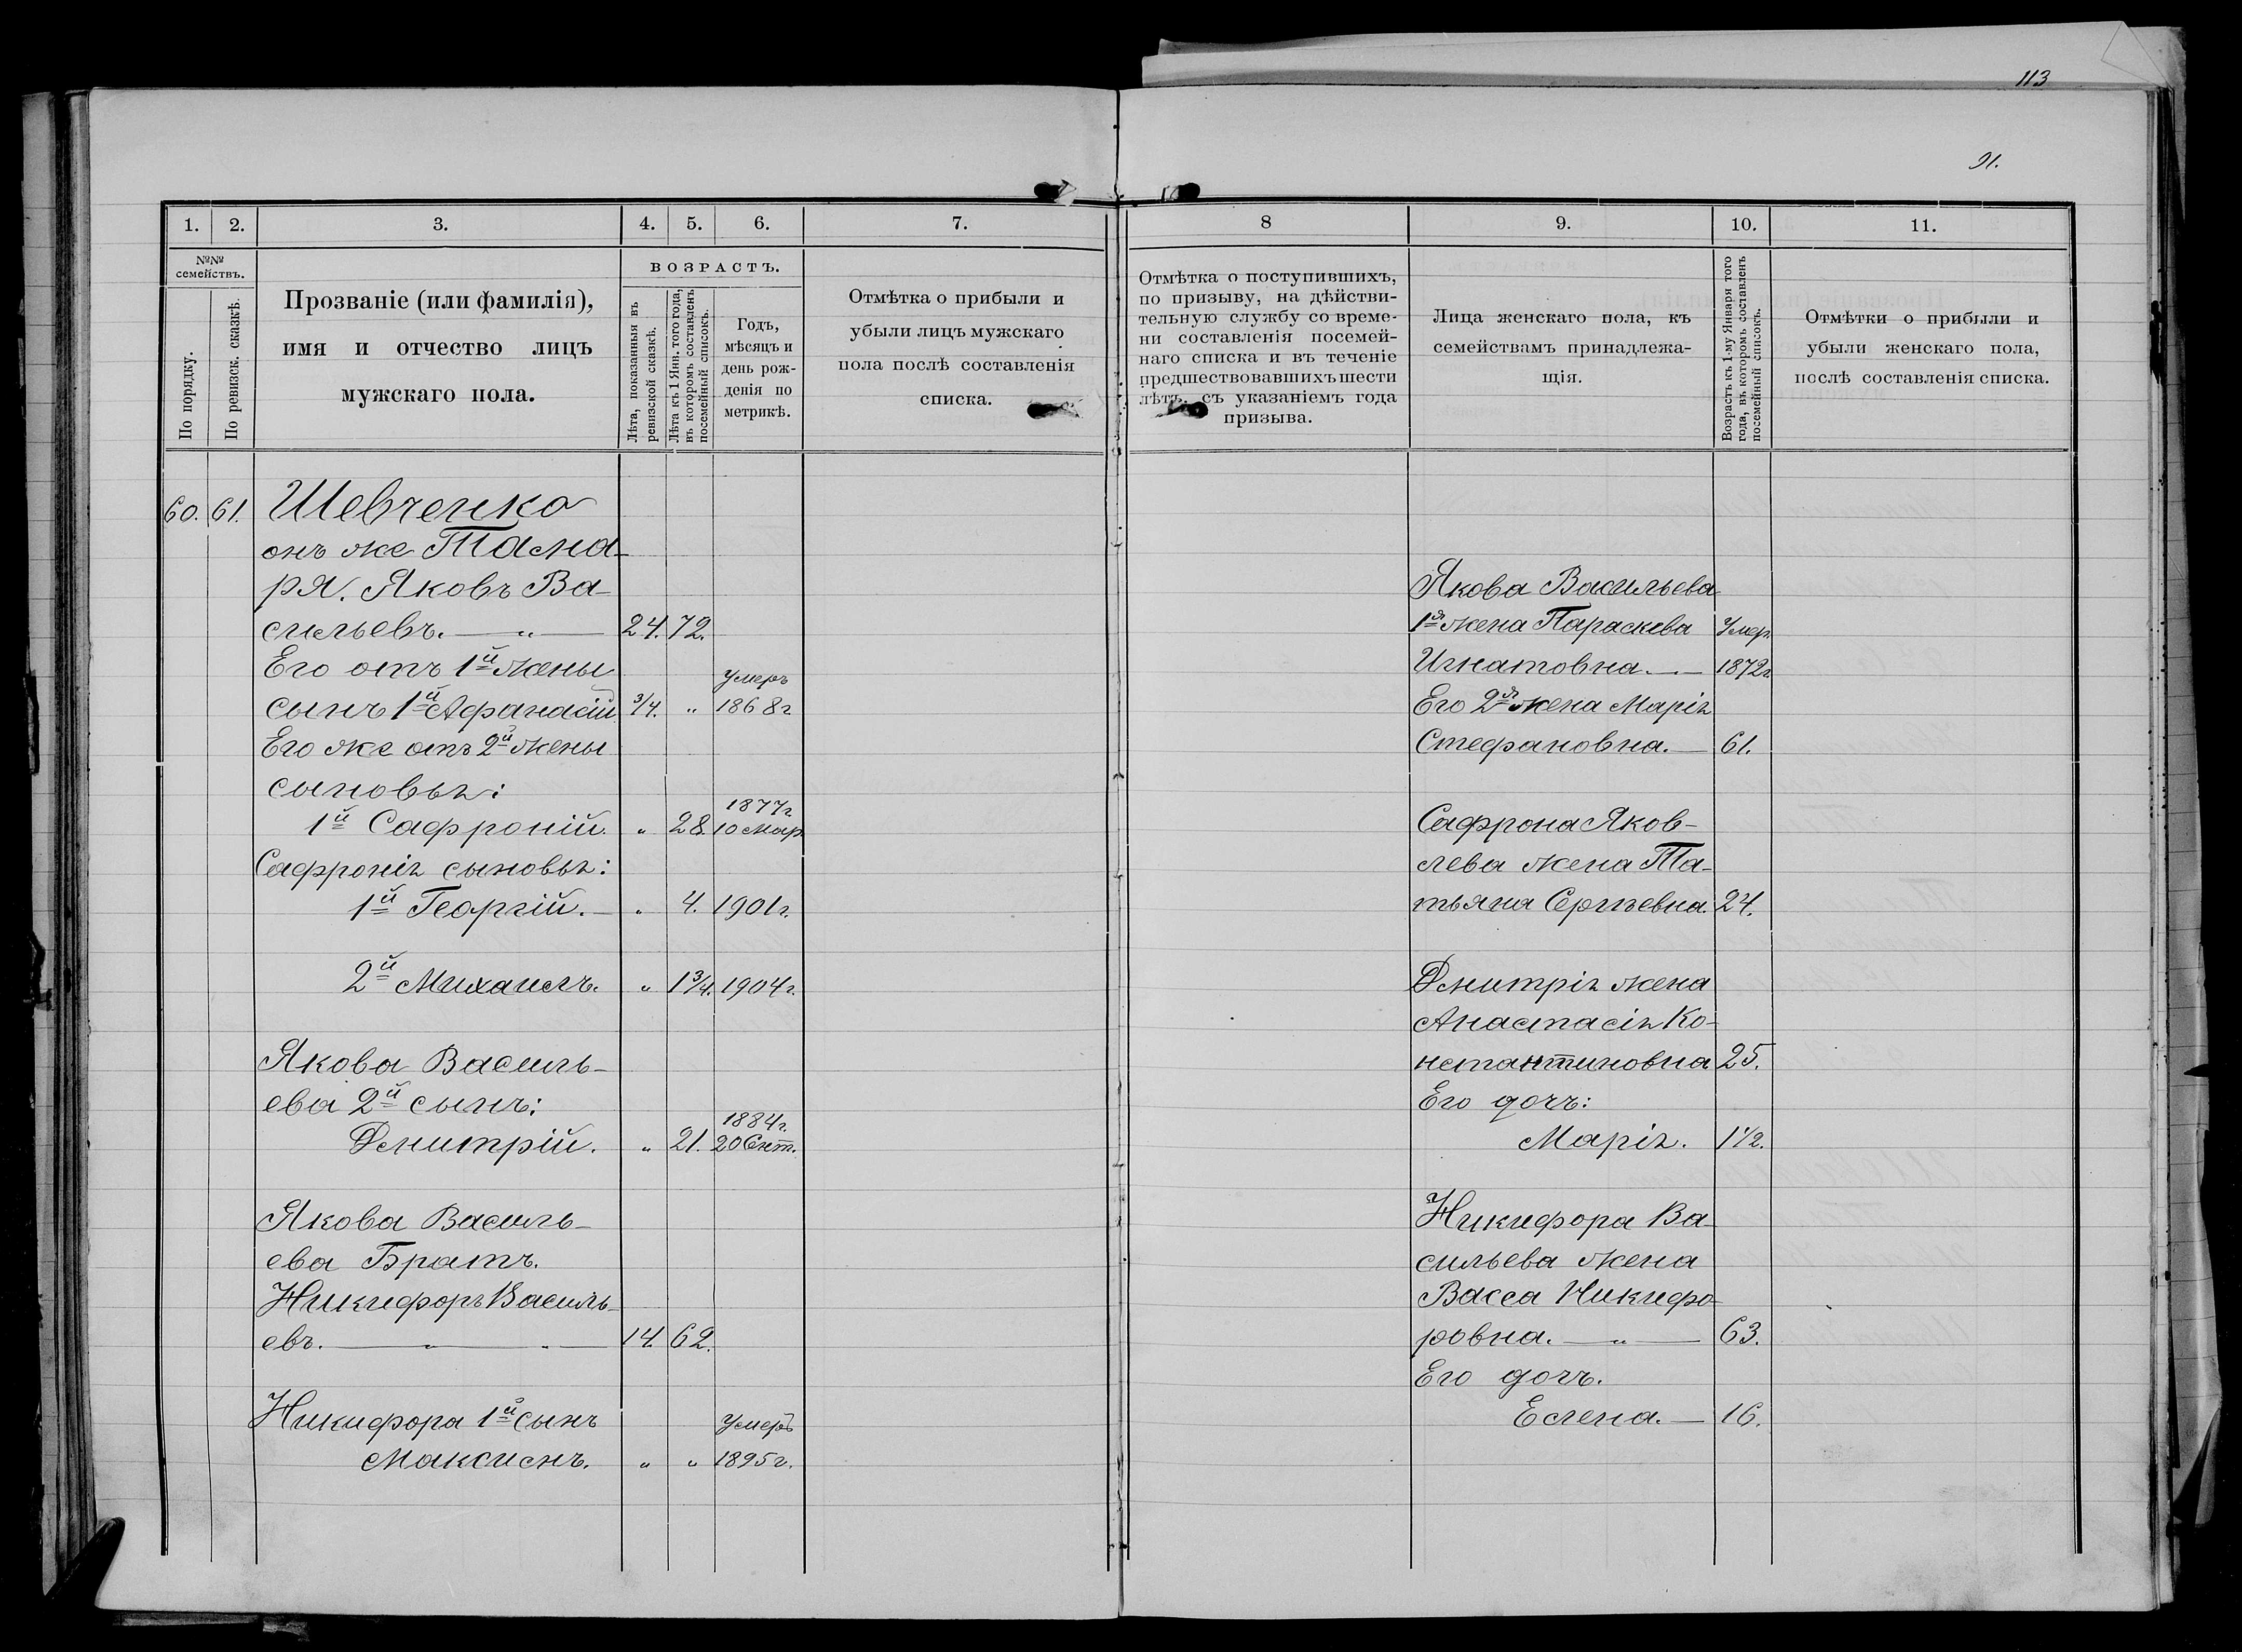 113
91.
1. 2. 3. 4. 5. 6. 7.
№№ семействъ.
По порядку.
По ревизск. сказкѣ.
Прозваніе (или фамилія),
имя и отчество лицъ
мужскаго пола.
ВОЗРАСТЪ.
Лѣта, показанныя въ
ревизской сказкѣ.
Лѣта къ 1 Янв. того года,
въ которомъ составленъ
посемейный списокъ.
Годъ,
мѣсяцъ и
день рож-
денія по
метрикѣ.
Отмѣтка о прибыли и
убыли лицъ мужскаго
пола послѣ составленія
списка.
60. 61. Шевченко
онъ же Тама-
ря. Яковъ Ва-
сильевъ. — „ — 24. 72.
Его отъ 1й жены умеръ
сынъ 1й Афанасій 3/4. „ 1868г
Его же отъ 2й жены
сыновья:
1877г.
1й Сафроній. „ 28. 10 Мар.
Сафронія сыновья:
1й Георгій. — „ 4. 1901г.
2й Михаилъ. „ 1 3/4. 1904г.
Якова Василь-
ева 2й сынъ:
1884г.
Дмитрій. „ 21. 20 Снт.
Якова Василь-
ева Братъ.
Никифоръ Василь-
евъ. — „ — „ — 14. 62.
Никифора 1й сынъ умеръ
Максимъ. „ „ 1895г.
8 9. 10. 11.
Отмѣтка о поступившихъ,
по призыву, на дѣйстви-
тельную службу со време-
ни составленія посемей-
наго списка и въ теченіе
предшествовавшихъ шести
лѣтъ, съ указаніемъ года
призыва.
Лица женскаго пола, къ
семействамъ принадлежа-
щія.
Возрастъ къ 1-му Января того
года, въ которомъ составленъ
посемейный списокъ.
Отмѣтки о прибыли и
убыли женскаго пола,
послѣ составленія списка.
Якова Васильева
1я жена Параскева Умер.
Игнатовна. — 1872г.
Его 2я жена Марія
Стефановна. — 61.
Сафрона Яков-
лева жена Та-
тьяна Сергѣевна. 24.
Дмитрія жена
Анастасія Ко-
нстантиновна 25.
Его дочъ:
Марія. 1 1/2.
Никифора Ва-
сильева жена
Васса Никифо-
ровна. — „ — 63.
Его дочъ.
Елена. — 16.